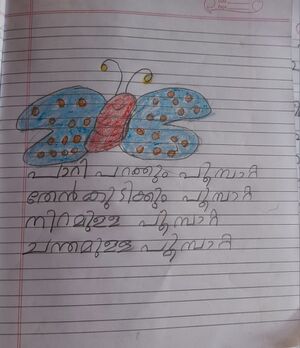 പാറി പറക്കും പൂമ്പാറ്റ
തേൻകുടിക്കും പൂമ്പാറ്റ
നിറമുള്ള പൂമ്പാറ്റ
ചന്തമുള്ള പൂമ്പാറ്റ